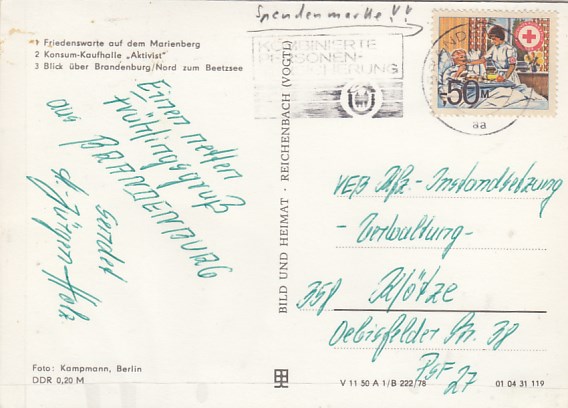 Spendenmarke!!
1 Friedenswarte auf dem Marienberg
2 Konsum-Kaufhalle „Aktivist“
3 Blick über Brandenburg/Nord zum Beetzsee
KOMBINIERTE
PERSONEN-
50M
aa
Einen netten
Frühlingsgruß
aus BRANDENBURG
sendet
BILD UND HEIMAT · REICHENBACH (VOGTL)
VEB Kfz-Instandsetzung
- Verwaltung -
358 Klötze
Oebisfelder Str. 38
PSF
27
Foto: Kampmann, Berlin
DDR 0,20 M
V 11 50 A 1/B 222/78
01 04 31 119